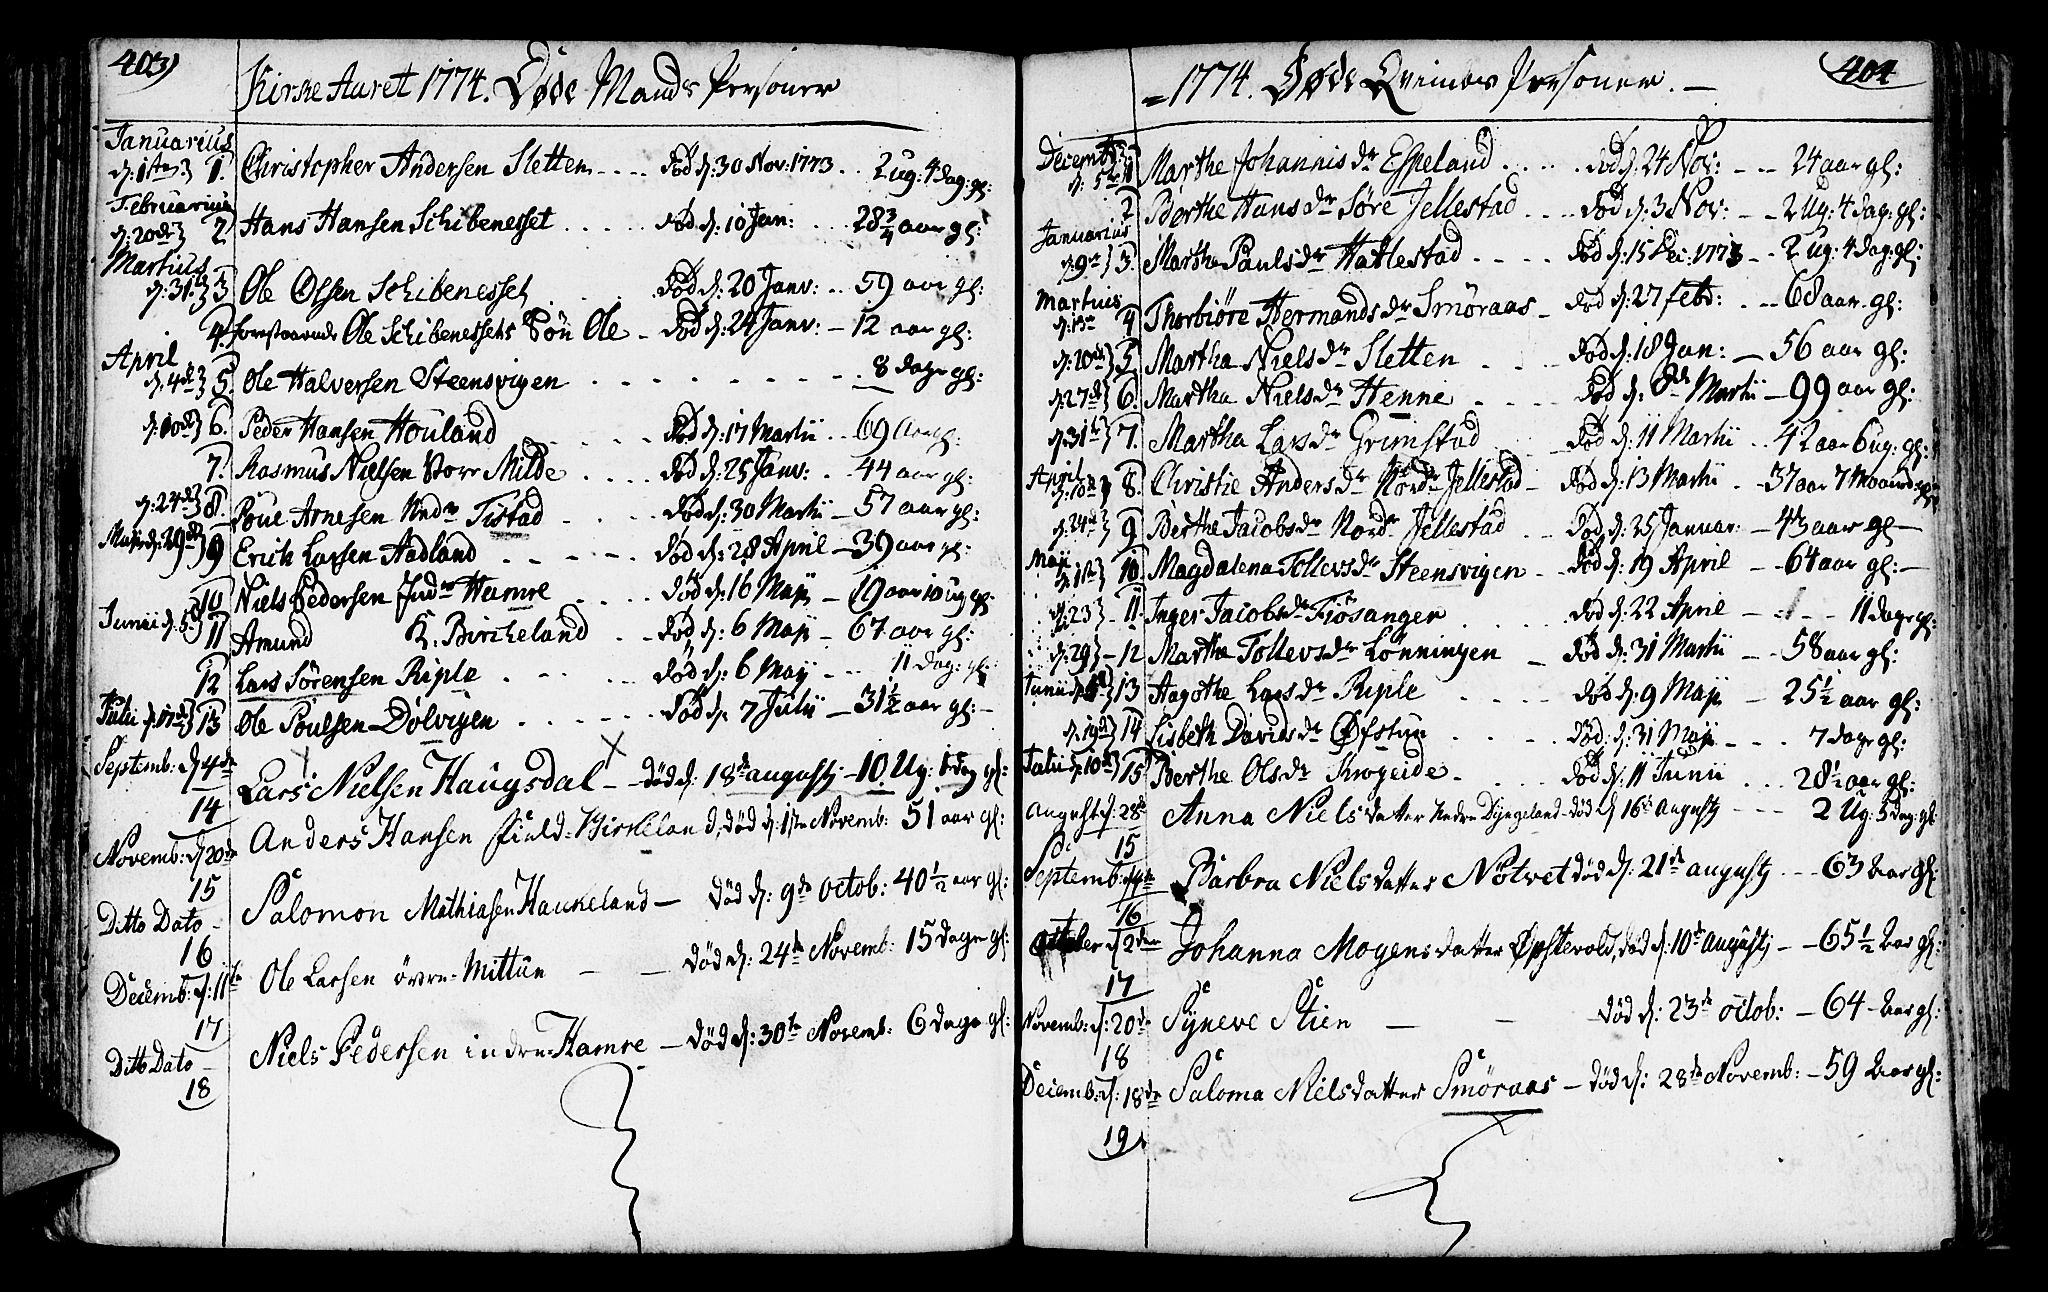 403)
Kirke Aaret 1774. Døde Mands Personer
Januarius
d: 1ste } 1. Christopher Andersen Sletten .... død d: 30 Nov: 1773 .. 2 ug: 4 dag: gl:
Februarius
d: 20de } 2 Hans Hansen Schibenesset ..... død d: 10 Jan: ... 28 3/4 aar gl:
Martius
d: 31te } 3 Ole Olsen Schibenesset ... død d: 20 Janv: -- 59 aar gl:
4. forestaaende Ole Schibenessets Søn Ole - død d: 24 Janv: - 12 aar gl:
April
d: 4de } 5. Ole Halversen Steensvigen ........ 8 dage gl:
d: 10de } 6. Peder Hansen Houland .... død d: 17 Martii .. 69 Aar gl:
7. Rasmus Nielsen Store Milde .... død d: 25 Janv: .. 44 aar gl:
d: 24de } 8. Poue Arnesen Nedre Tistad .... død d: 30 Martii - 57 aar gl:
Maji d: 29de } 9 Erich Larsen Aadland .... død d: 28 April - 39 aar gl:
10 Niels Pedersen Indre Hamre .... død d: 16 Maji - 19 aar 10 ug gl:
Junii d: 5te } 11 Amund K. Bircheland .. død d: 6 Maji - 67 aar gl:
12 Lars Sörensen Riple .... død d: 6 May --- 11 dag: gl:
Julii d: 17de } 13 Ole Poulsen Dolvigen ...... død d: 7 Julii - 31 1/2 aar gl: -
Septemb: d 4de
14 Lars Nielsen Haugsdal - død d: 18de augustj - 10 Ug: 1 dag gl:
Novemb: d 20de
15 Anders Hansen field-Birkeland, død d: 1ste Novemb: 51 aar gl:
Ditto Dato -
16 Salomon Mathiasen Haukeland - død d: 9de octob: 40 1/2 aar gl:
Decemb: d: 11te
17 Ole Larsen övre-Mittun - - død d: 24de Novemb: 15 dage gl:
Ditto Dato -
18 Niels Pedersen indre-Hamre - død d: 30te Novemb: 6 dage gl:
404
= 1774. Døde Qvindes Personer. -
December
d: 5te } 1 Marthe Johannis dr Espeland .... død d: 24 Nov: -- 24 aar gl:
2 Berthe Hans dr Søre Jellestad .... død d: 3 Nov: -- 2 Ug: 4 dag: gl:
Januarius
d: 9de } 3. Martha Pauls dr Hatlestad .... død d: 15 Dec: 1773 -- 2 Ug: 4 dag: gl:
Martius
d: 13de 4 Thorbiöre Hermands dr Smöraas - død d: 27 feb: .. 68 aar gl:
d: 20de } 5 Martha Niels dr Sletten .... død d: 18 Jan: - 56 aar gl:
d: 27de } 6. Martha Niels dr Henne .... død d: 8de Martii - 99 aar gl:
d: 31te } 7. Martha Lars dr Grimstad .. død d: 11 Martii .. 42 aar 6 ug: gl:
April
d: 10de } 8. Christie Anders dr Nordre Jellestad - død d: 13 Martii . 37 aar 7 Maaned gl:
d: 24de } 9 Berthe Jacobs dr Nordre Jellestad .. død d: 25 Januar: - 43 aar gl -
Maji
d: 1ste } 10. Magdalena Tollevs dr Steensvigen - død d: 19 April - 64 aar gl: -
d: 23 } - 11. Inger Jacobs dr Fiösanger .... død d: 22 April - - 11 dage gl:
d: 29 } - 12 Marthe Tollevs dr Lonningen - død d: 31 Martii - 58 aar gl:
Junii } 13 Aagothe Lars dr Riple .... død d: 9 Maji - 25 1/2 aar gl:
d: 19de } 14 Lisbeth Davids dr Øfstun .... død d: 31 Maji --- 7 dage gl:
Julii d: 10de } 15 Berthe Ols dr Krogeide .... død d: 11 Junii ... 28 1/2 aar gl:
August: d: 28de
15 Anna Niels datter Nedre Dyngeland - død d 16de augustj --- 2 Ug: 3 dag: gl:
Septemb: 4de
16 Barbra Niels datter Nötvet død d: 21de augustj .-- 63 aar gl:
October d 2den
17 Johanna Mogens datter Øphstevold, død d: 10de Augustj - - 65 1/2 aar gl:
Novemb: d: 20de
18 Syneve Stien - - død d: 23de octob: - 64 - aar gl:
Decemb: d: 18de
19 Saloma Niels datter Smöraas - død d: 28de Novemb: - 59 aar gl: